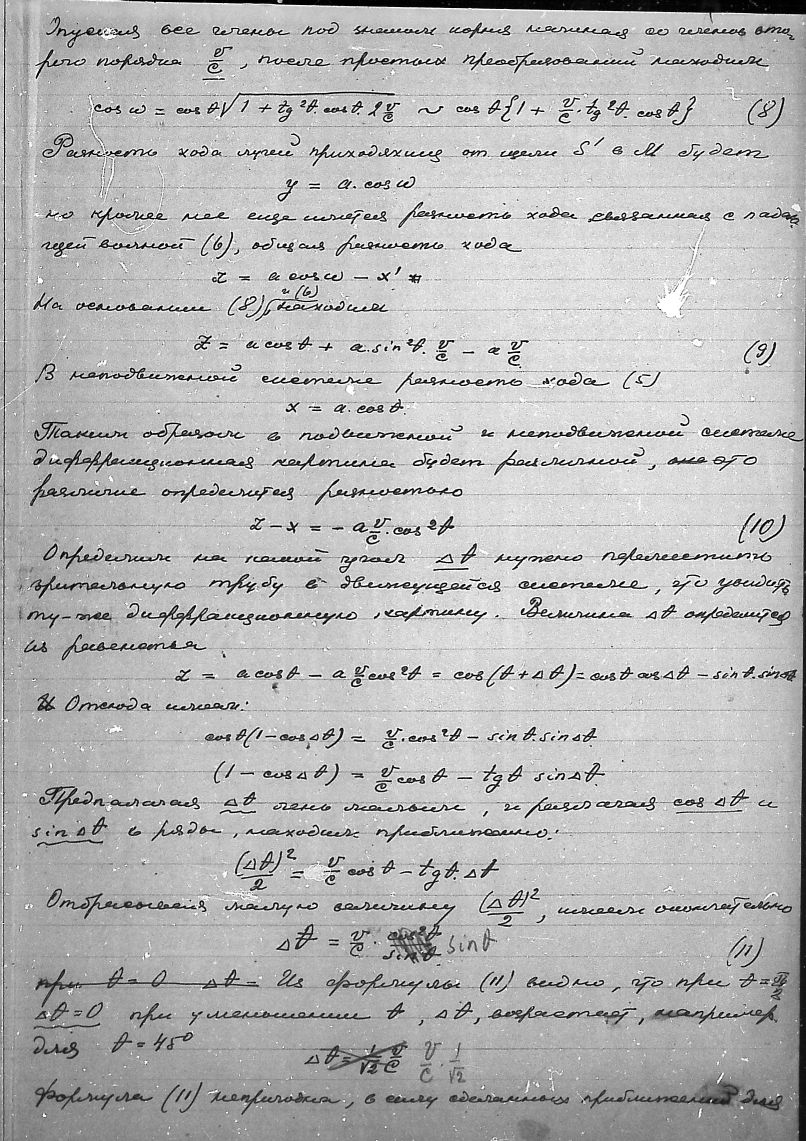 Опуская все члены под знаком корня начиная со членов вто-
рого порядка v/c, после простых преобразований находим
cos w = cos t √(1 + tg²t. cos t. 2 v/c) ~ cos t {1 + v/c. tg²t. cos t} (8)
Разность хода лучей приходящих от щели S' в M будет
y = a. cos w
но кроме нее еще имеется разность хода связанная с падаю-
щей волной (6), общая разность хода
z = a cos w − x'
На основании (8) и (6) находим
z = a cos t + a. sin²t. v/c − a v/c (9)
В неподвижной системе разность хода (5)
x = a. cos t.
Таким образом в подвижной и неподвижной системе
диффракционная картина будет различной, это
различие определится разностью
z − x = − a v/c. cos²t (10)
Определим на какой угол Δt нужно переместить
зрительную трубу в движущейся системе, что увидить
ту-же диффракционную картину. Величина Δt определится
из равенства
z = a cos t − a v/c cos²t = cos (t + Δt) = cos t cos Δt − sin t. sin Δt
Отсюда имеем:
cos t (1 − cos Δt) = v/c. cos²t − sin t. sin Δt.
(1 − cos Δt) = v/c cos t − tg t sin Δt.
Предпалагая Δt очень малым, и разлагая cos Δt и
sin Δt в ряды, находим приближенно:
(Δt)²/2 = v/c cos t − tg t. Δt
Отбрасывая малую величину (Δt)²/2, имеем окончательно
Δt = v/c. cos²t/sin t sin t (11)
при t = 0 Δt = Из формулы (11) видно, что при t = π/2
Δt = 0 при уменьшении t, Δt, возрастает, например
для t = 45°
Δt = 1/√2 v/c v/c. 1/√2
Формула (11) непригодна, в силу сделанных приближений для